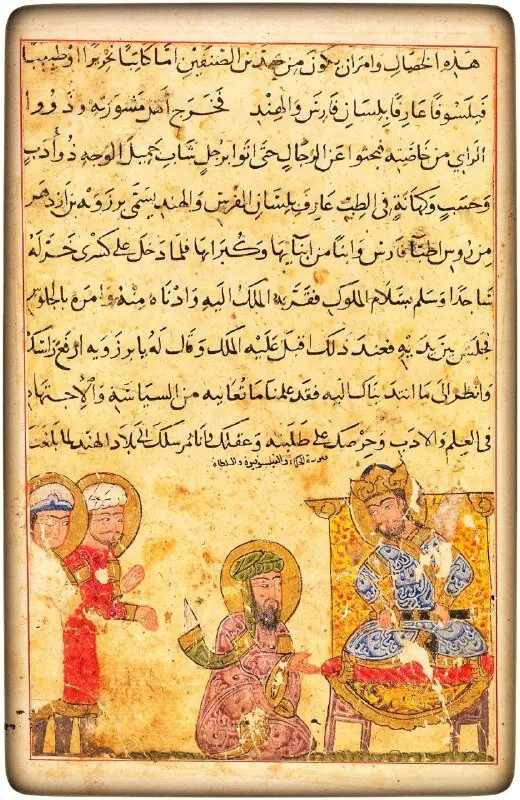 هذه الخصال وامر ان يكون من احد من الصنفين اما كاتبا نحريرا او طبيبا
فيلسوفا عارفا بلسان فارس والهند فخرج اهل مشورته وذووا
الراي من خاصته فبحثوا عن الرجال حتى اتوا برجل شاب جميل الوجه ذو أدب
وحسب وكهانة في الطب عارف بلسان الفرس والهند يسمى برزويه بن ازدهر
من روس اطبآ فارس وابنا من ابنايها وكبرايها فلما دخل على كسرى خر له
ساجدا وسلم بسلام الملوك فقربه الملك اليه وادناه منه وامره بالجلوس
فجلس بين يديه فعند ذلك اقبل عليه الملك وقال له يا برزويه ارفع راسك
وانظر الى ما انتدبناك اليه فقد علمنا ما تعانيه من السياسة والاجتهاد
في العلم والادب وحرصك على طلبه وعقلك فانا نرسلك الى بلاد الهند لما بلغنا
صورة